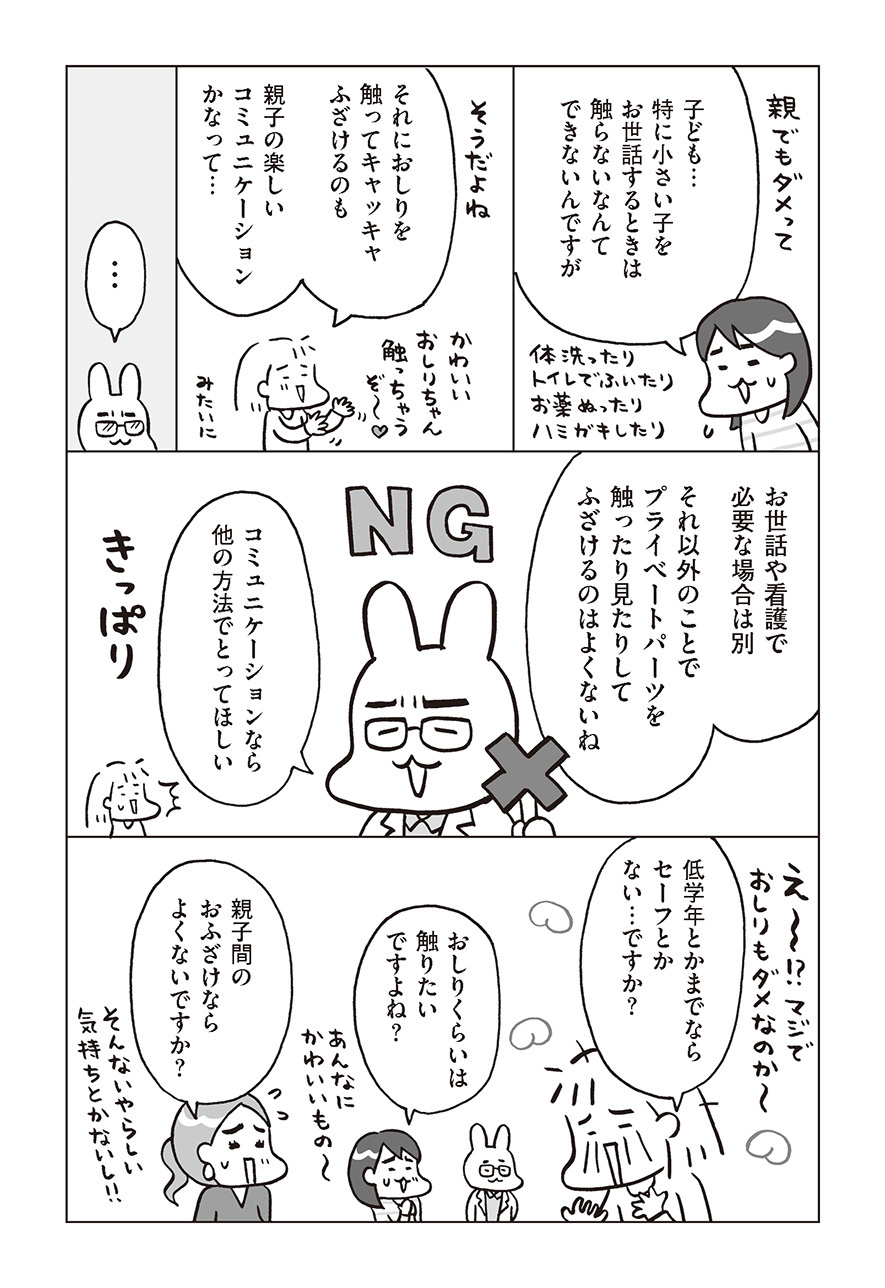 親でもダメって
子ども…
特に小さい子を
お世話するときは
触らないなんて
できないんですが
体洗ったり
トイレでふいたり
お薬ぬったり
ハミガキしたり
そうだよね
それにおしりを
触ってキャッキャ
ふざけるのも
親子の楽しい
コミュニケーション
かなって…
かわいい
おしりちゃん
触っちゃう
ぞ〜♥
みたいに
…
お世話や看護で
必要な場合は別
それ以外のことで
プライベートパーツを
触ったり見たりして
ふざけるのはよくないね
NG
コミュニケーションなら
他の方法でとってほしい
きっぱり
え〜!?マジで
おしりもダメなのか〜
低学年とかまでなら
セーフとか
ない…ですか?
おしりくらいは
触りたい
ですよね?
あんなに
かわいいもの〜
親子間の
おふざけなら
よくないですか?
そんないやらしい
気持ちとかないし!!